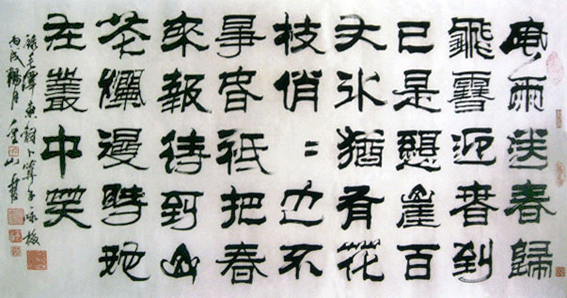 風雨送春歸
飛雪迎春到
已是懸崖百
丈冰猶有花
枝俏〻也不
爭春祇把春
來報待到山
花爛漫時她
在叢中笑
錄毛澤東詞卜算子咏梅
丙戌 月 山